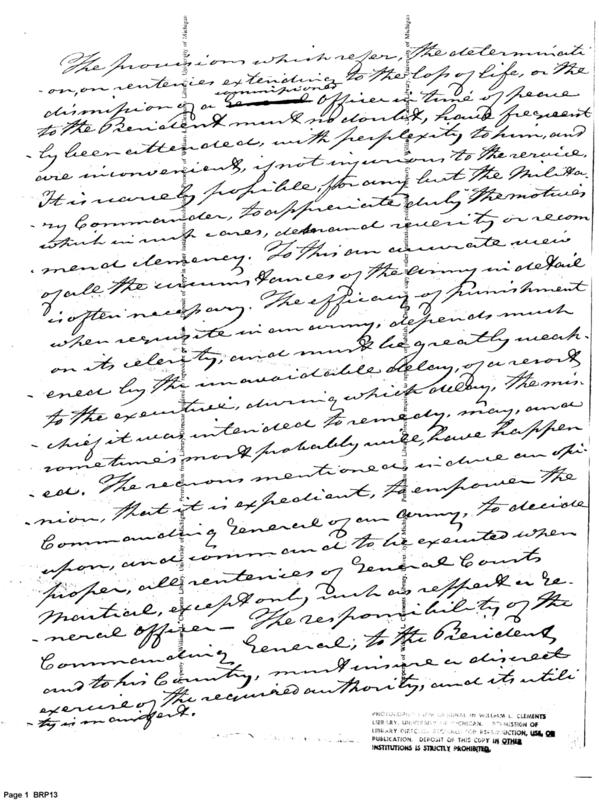 The provisions which refer, the determinati
-on, on sentences extending to the loss of life, or the
commissioned
dismission of a Officer in time of peace
to the President must no doubt, have frequent
ly been attended, with perplexity to him, and
are inconvenient, if not injurious to the service.
It is scarcely possible, for any but the Milita-
ry Commander, to appreciate duly the motives
which in such cases, demand severity or recom
mend clemency. To this an accurate view
of all the circumstances of the army in detail
is often necessary. The efficacy of punishment
when requisite in an army, depends much
on its celerity, and must be greatly weak-
-ened by the unavoidable delay, of a resort
to the executive, during which delay, the mis
-chief it was intended to remedy, may, and
sometimes most probably will, have happen
-ed. The reasons mentioned, induce an opi-
-nion, that it is expedient, to empower the
Commanding General of an army, to decide
upon, and command to be executed when
proper, all sentences of General Courts
Martial, except only such as respect a Ge-
-neral Officer - The responsibility of the
Commanding General, to the President
and to his Country, must insure a discreet
exercise of the required authority, and its utili
-ty is manifest.
LIBRARY, UNIVERSITY OF MICHIGAN. PERMISSION OF
PUBLICATION. DEPOSIT OF THIS COPY IN OTHER
INSTITUTIONS IS STRICTLY PROHIBITED.
Page 1 BRP13